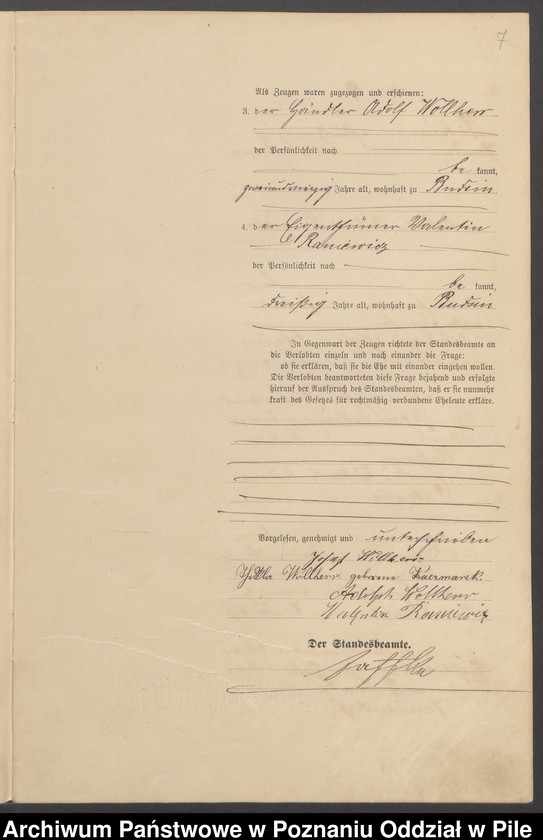 7
Als Zeugen waren zugezogen und erschienen:
3. der Händler Adolf Wollherr
der Persönlichkeit nach
be kannt,
zweiundvierzig Jahre alt, wohnhaft zu Budsin
4. der Eigenthümer Valentin
Raniewicz
der Persönlichkeit nach
be kannt,
dreißig Jahre alt, wohnhaft zu Budsin
In Gegenwart der Zeugen richtete der Standesbeamte an
die Verlobten einzeln und nach einander die Frage:
ob sie erklären, daß sie die Ehe mit einander eingehen wollen.
Die Verlobten beantworteten diese Frage bejahend und erfolgte
hierauf der Ausspruch des Standesbeamten, daß er sie nunmehr
kraft des Gesetzes für rechtmäßig verbundene Eheleute erkläre.
Vorgelesen, genehmigt und unterschrieben
Josef Wollherr
Wollherr geborene Kaczmarek.
Adolph Wollherr
Valentin Raniewicz
Der Standesbeamte.
Archiwum Państwowe w Poznaniu Oddział w Pile